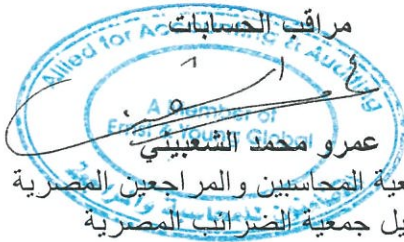 مراقب الحسابات
Allied for Accounting & Auditing
A Member of
Ernst & Young Global
عمرو محمد الشعبيني
عية المحاسبين والمراجعين المصرية
يل جمعية الضرائب المصرية